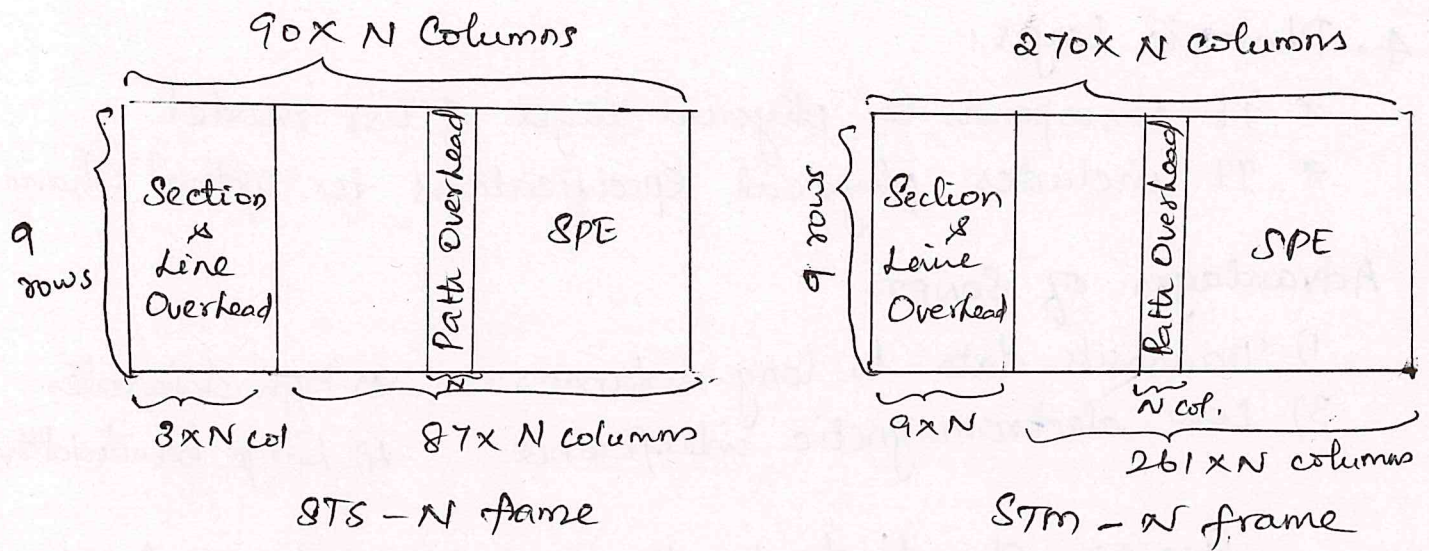 90 X N Columns
9
rows
Section
&
Line
Overhead
Path Overhead
SPE
3XN col
N
87X N columns
STS - N frame
270X N columns
9 rows
Section
&
Leine
Overhead
Path Overhead
SPE
9XN
N col.
261 XN columns
STM - N frame